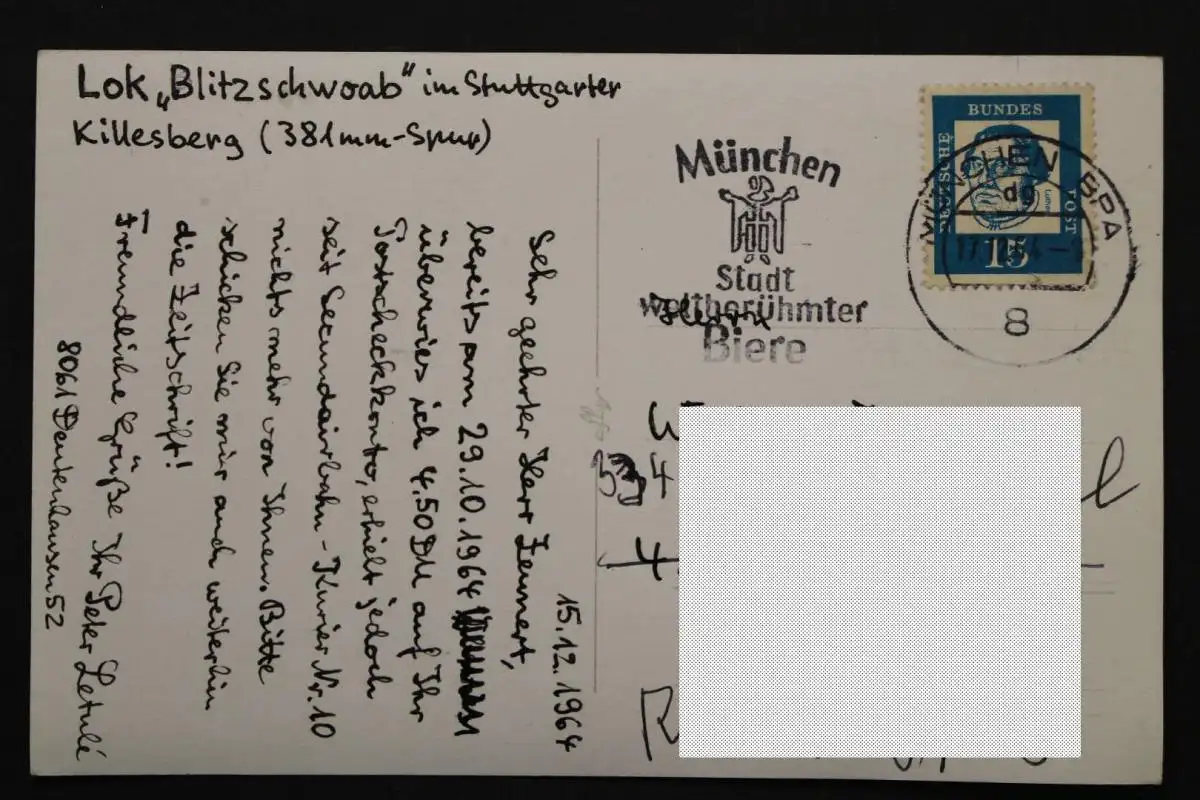 Lok „Blitzschwoab“ im Stuttgarter
Killesberg (381mm-Spur)
15.12.1964
Sehr geehrter Herr Zennert,
bereits am 29.10.1964
überwies ich 4.50DM auf Ihr
Postscheckkonto, erhielt jedoch
seit Secundairbahn-Kurier Nr. 10
nichts mehr von Ihnen. Bitte
schicken Sie mir auch weiterhin
die Zeitschrift!
Freundliche Grüße Ihr Peter Letulé
8061 Deutenhausen 52
München
Stadt
weltberühmter
Biere
DEUTSCHE
BUNDES
POST
Luther
15
MÜNCHEN BPA
dg
8
Herrn